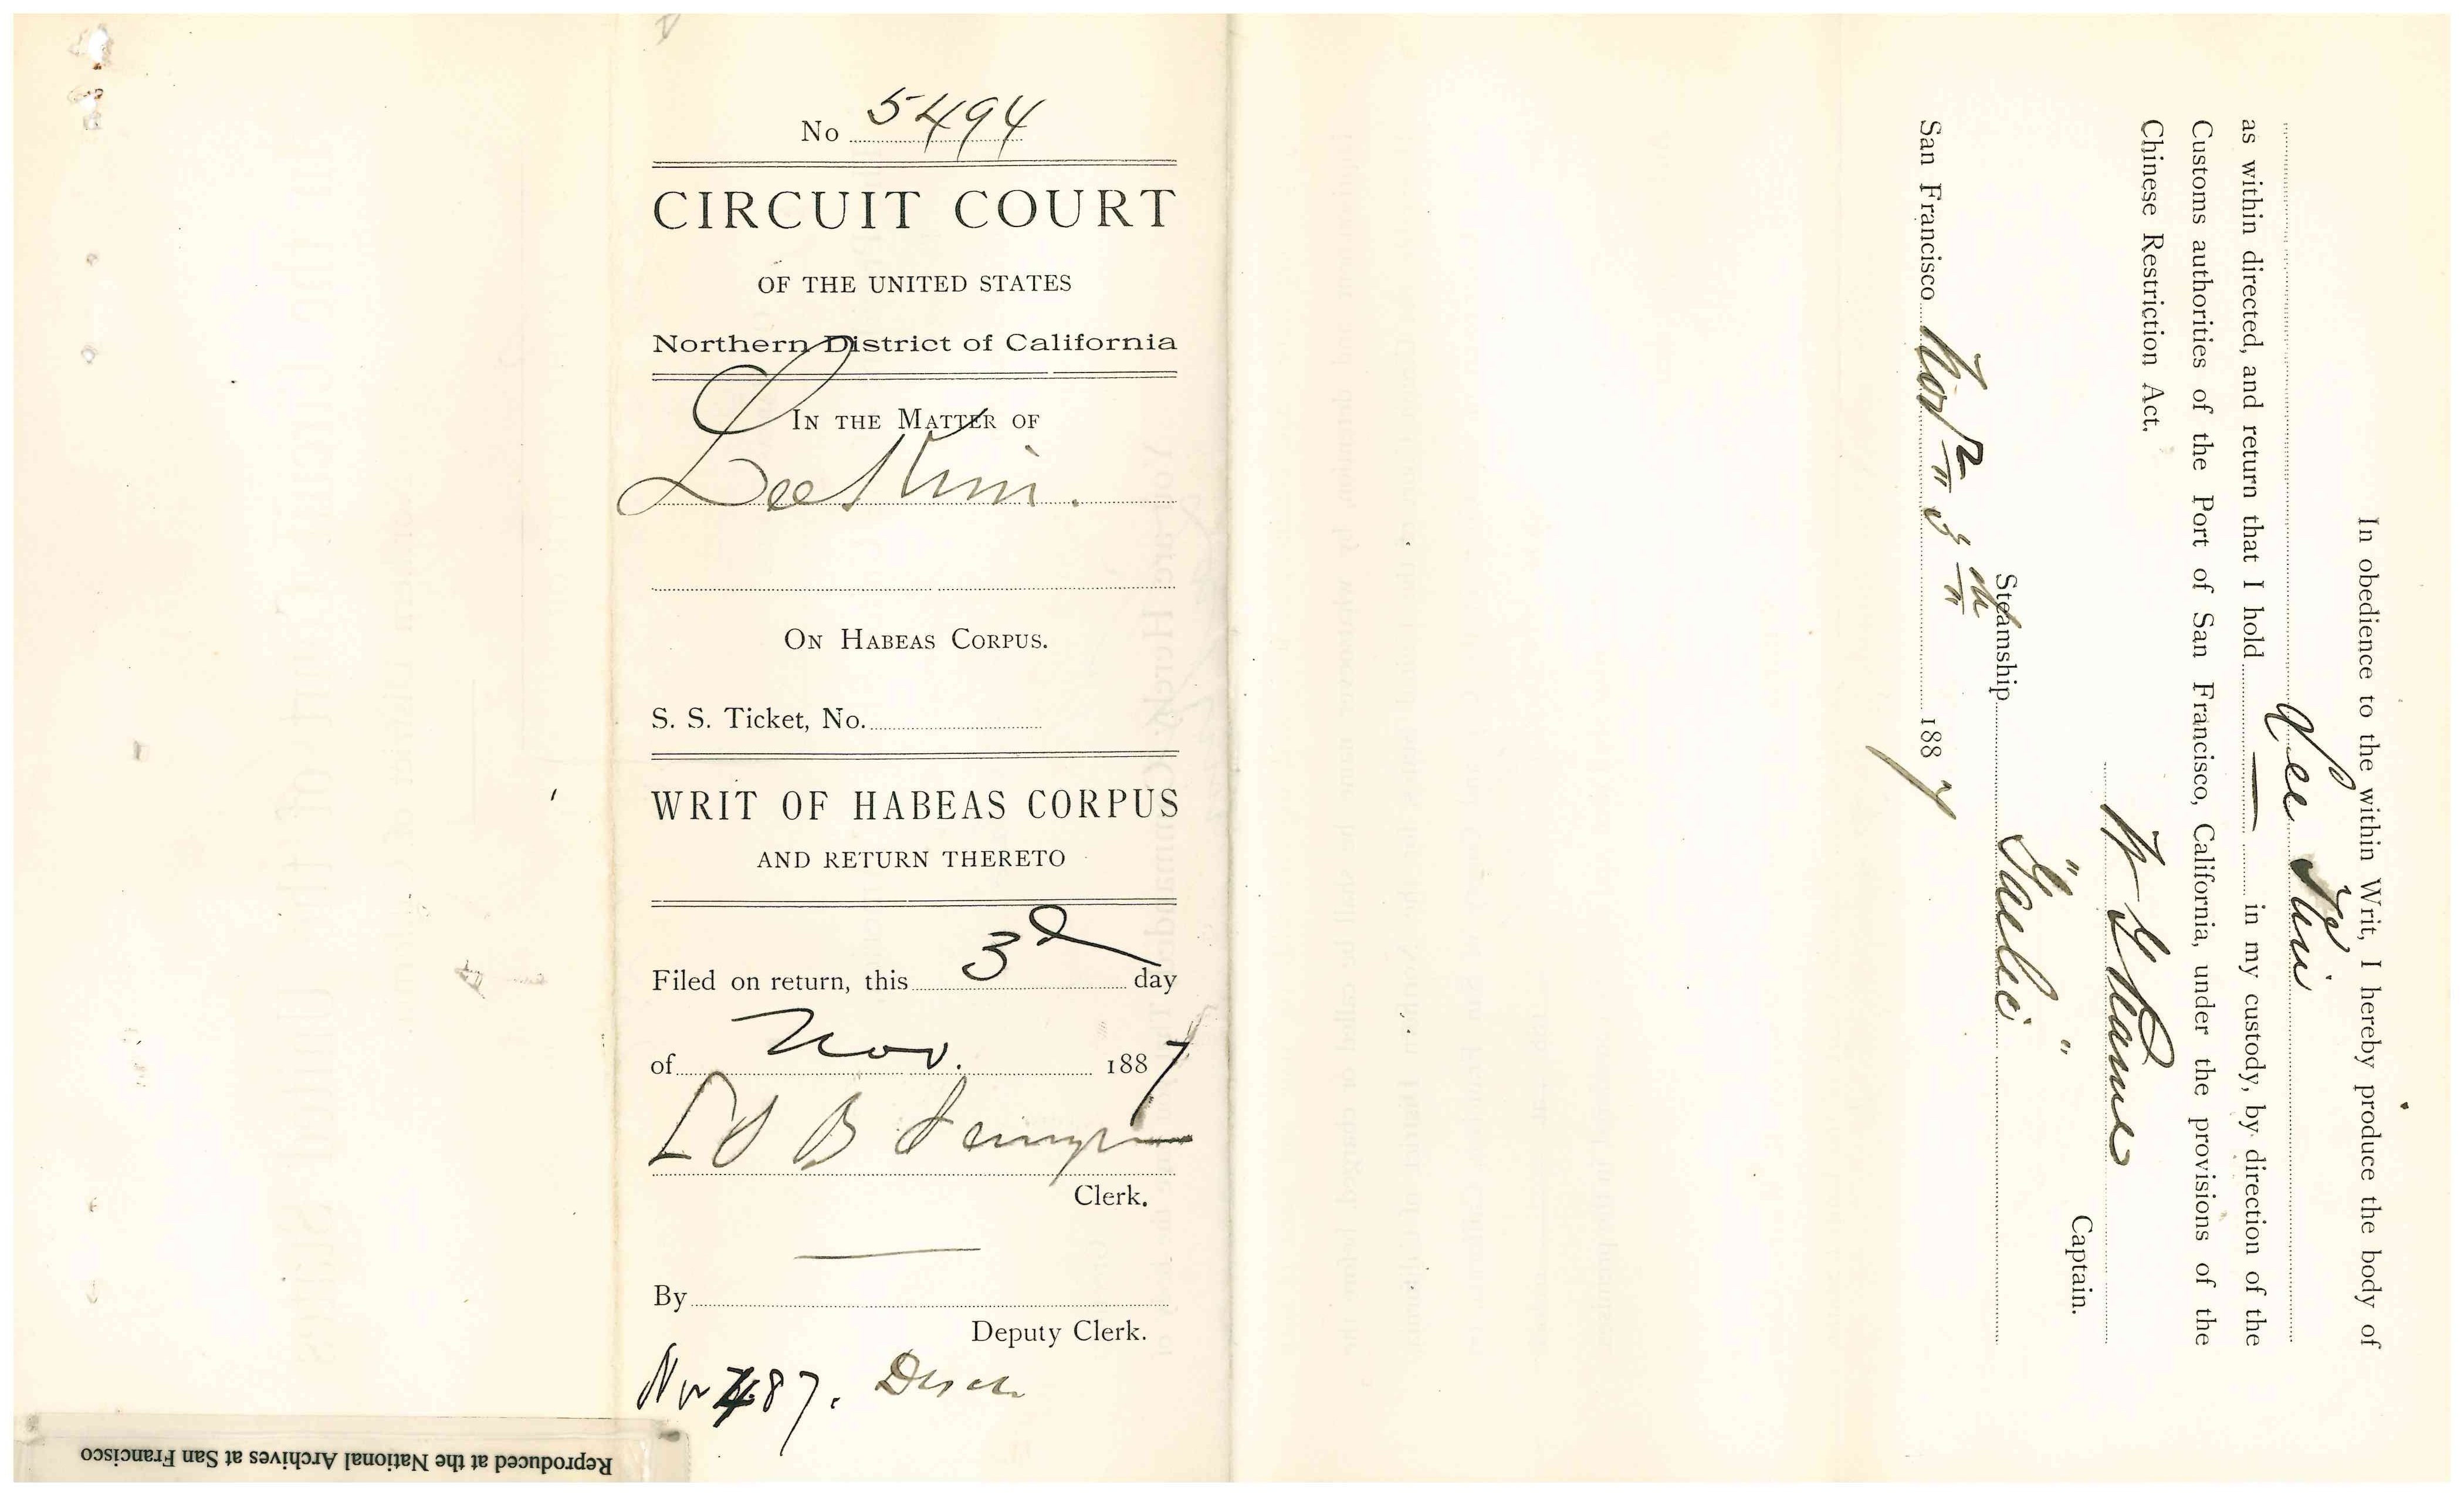 No 5494
CIRCUIT COURT
OF THE UNITED STATES
Northern District of California
IN THE MATTER OF
Lee Kim.
ON HABEAS CORPUS.
S. S. Ticket, No.
WRIT OF HABEAS CORPUS
AND RETURN THERETO
Filed on return, this 3d day
of Nov. 1887
L S B
Clerk.
By
Deputy Clerk.
87.
Reproduced at the National Archives at San Francisco
In obedience to the within Writ, I hereby produce the body of
Lee Kim
as within directed, and return that I hold in my custody, by direction of the
Customs authorities of the Port of San Francisco, California, under the provisions of the
Chinese Restriction Act.
Captain.
Steamship "Gaelic"
San Francisco 1887